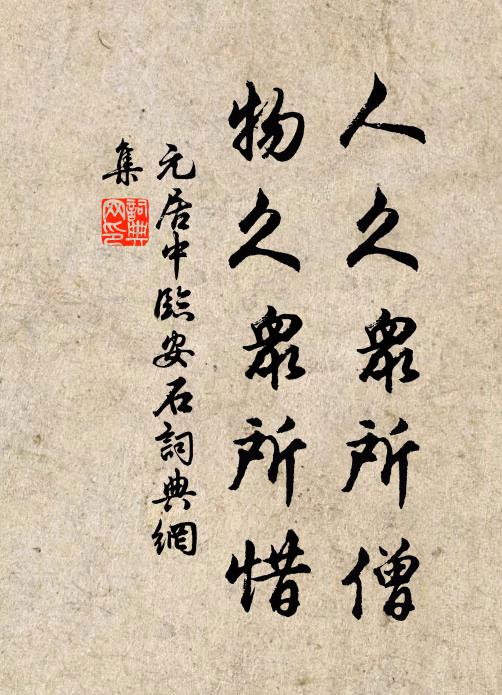 人久衆所僧
物久衆所惜
元居中臨安石詞典網
集
詞典
网印